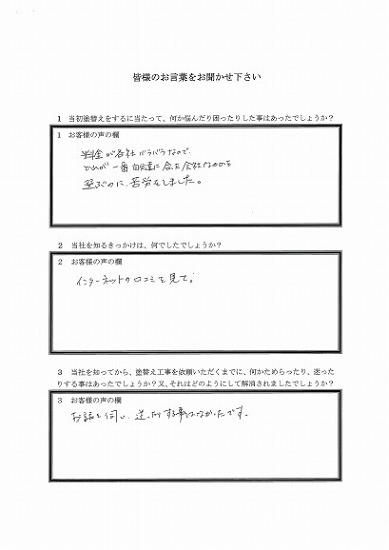 皆様のお言葉をお聞かせ下さい
1 当初塗替えをするに当たって、何か悩んだり困ったりした事はあったでしょうか？
1 お客様の声の欄
料金が各社バラバラなので、
どれが一番自社に合う会社なのかを
選ぶのに苦労をしました。
2 当社を知るきっかけは、何でしたでしょうか？
2 お客様の声の欄
インターネットの口コミを見て。
3 当社を知ってから、塗替え工事を依頼いただくまでに、何かためらったり、迷った
りする事はあったでしょうか？又、それはどのようにして解消されましたでしょうか？
3 お客様の声の欄
お話を伺い、迷ったりする事はなかったです。